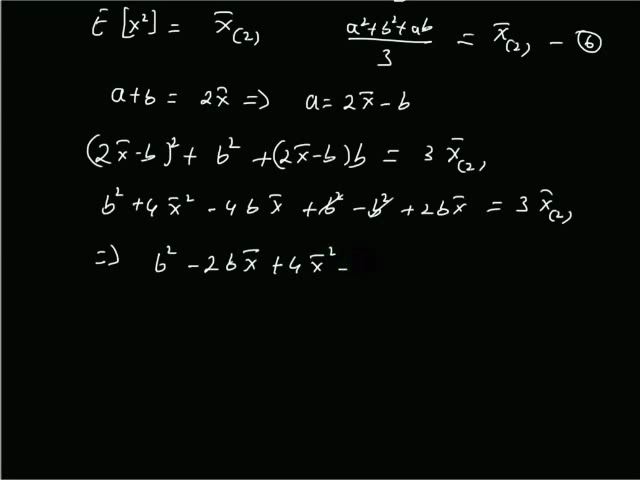 E [x²] = x̄₍₂₎   (a²+b²+ab)/3 = x̄₍₂₎ - ⑥
a+b = 2x̄ => a = 2x̄ - b
(2x̄-b)² + b² + (2x̄-b)b = 3 x̄₍₂₎
b² + 4x̄² - 4bx̄ + b² - b² + 2bx̄ = 3 x̄₍₂₎
=> b² - 2bx̄ + 4x̄² -